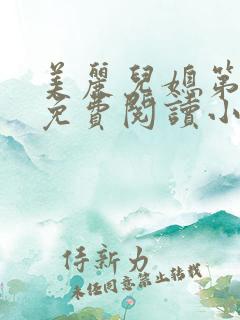 美麗兒媳第
免費閱讀小
侍新力
未经同意禁止转载